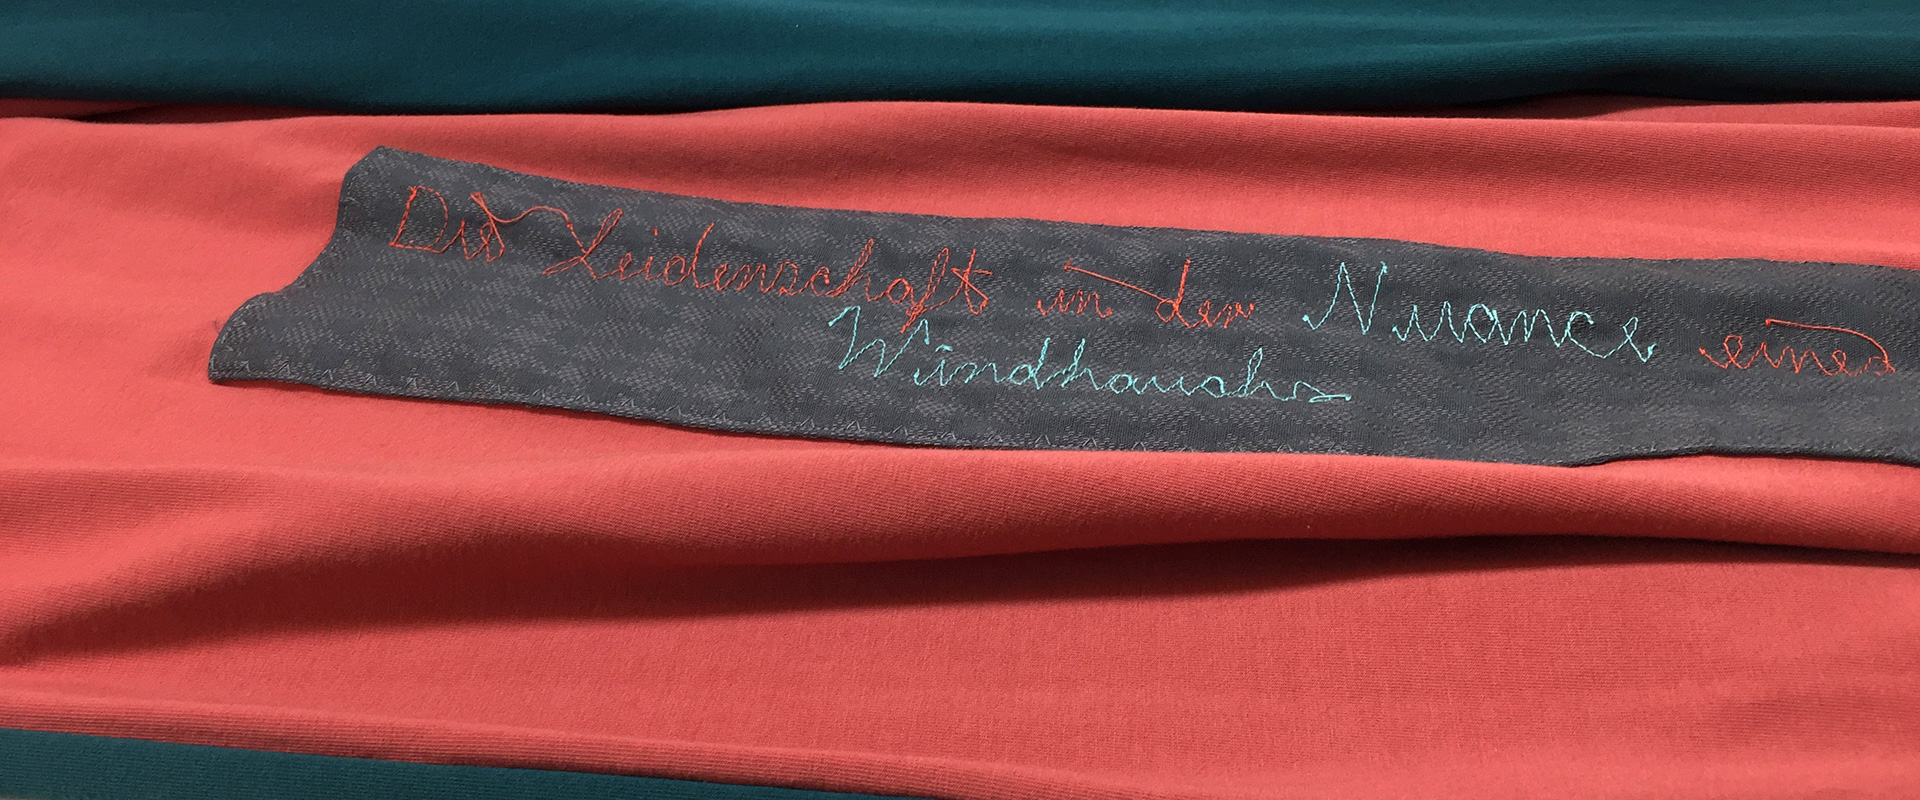 Die Leidenschaft in der Nuance eines
Windhauchs